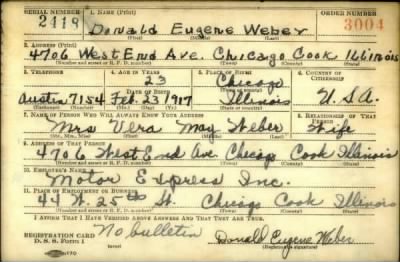 SERIAL NUMBER 1. NAME (Print) ORDER NUMBER
2418 Donald Eugene Weber 3004
2. ADDRESS (Print)
4706 West End Ave. Chicago Cook Illinois
(Number and street or R. F. D. number) (Town) (County) (State)
3. TELEPHONE 4. AGE IN YEARS 5. PLACE OF BIRTH 6. COUNTRY OF CITIZENSHIP
23 Chicago
Austin 7154 Feb. 23 1917 Illinois U.S.A.
DATE OF BIRTH
7. NAME OF PERSON WHO WILL ALWAYS KNOW YOUR ADDRESS 8. RELATIONSHIP OF THAT PERSON
Mrs Vera May Weber Wife
9. ADDRESS OF THAT PERSON
4706 West End Ave Chicago Cook Illinois
(Number and street or R. F. D. number) (Town) (County) (State)
10. EMPLOYER'S NAME
Motor Express Inc.
11. PLACE OF EMPLOYMENT OR BUSINESS
44 W. 25th St. Chicago Cook Illinois
(Number and street or R. F. D. number) (Town) (County) (State)
I AFFIRM THAT I HAVE VERIFIED ABOVE ANSWERS AND THAT THEY ARE TRUE.
REGISTRATION CARD No bulletin Donald Eugene Weber
D. S. S. Form 1